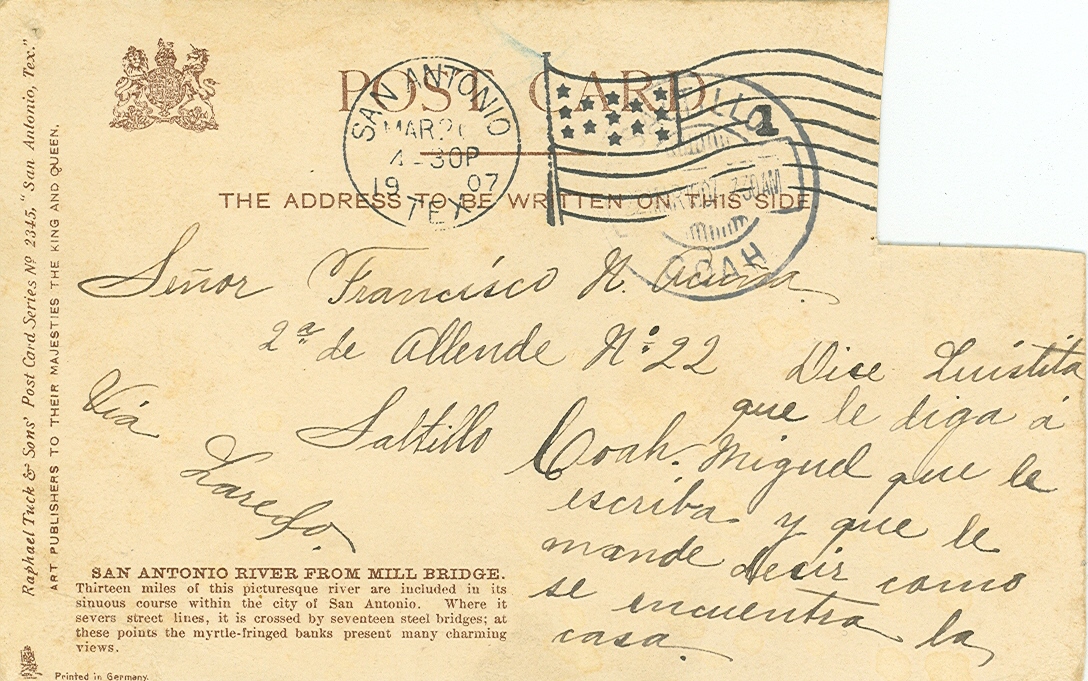 Raphael Tuck & Sons' Post Card Series Nº 2345, "San Antonio, Tex."
ART PUBLISHERS TO THEIR MAJESTIES THE KING AND QUEEN.
POST CARD
SAN ANTONIO
MAR 2
4-30P
19 07
TEX
1
COAH
THE ADDRESS TO BE WRITTEN ON THIS SIDE
Señor Francisco N. Acuna.
2ª de Allende Nº 22
Saltillo Coah.
Via
Laredo.
Dise Luistita
que le diga á
Miguel que le
escriba y que le
mande desir como
se encuentra la
casa.
SAN ANTONIO RIVER FROM MILL BRIDGE.
Thirteen miles of this picturesque river are included in its
sinuous course within the city of San Antonio. Where it
severs street lines, it is crossed by seventeen steel bridges; at
these points the myrtle-fringed banks present many charming
views.
Printed in Germany.